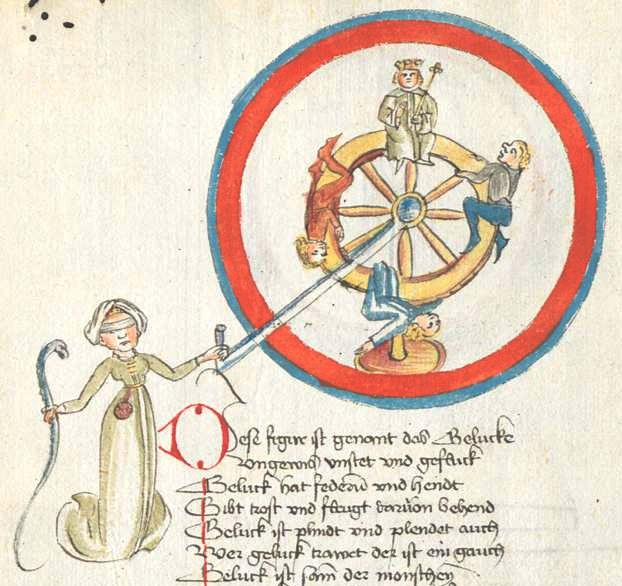 Dese figur ist genant das Gelucke
Ungewis unstet und gefluck
Geluck hat federn und hendt
Gibt trost und flugt darvon behend
Geluck ist plindt und plendet auch
Wer geluck trawet der ist ein gauch
Geluck ist sam der monschein